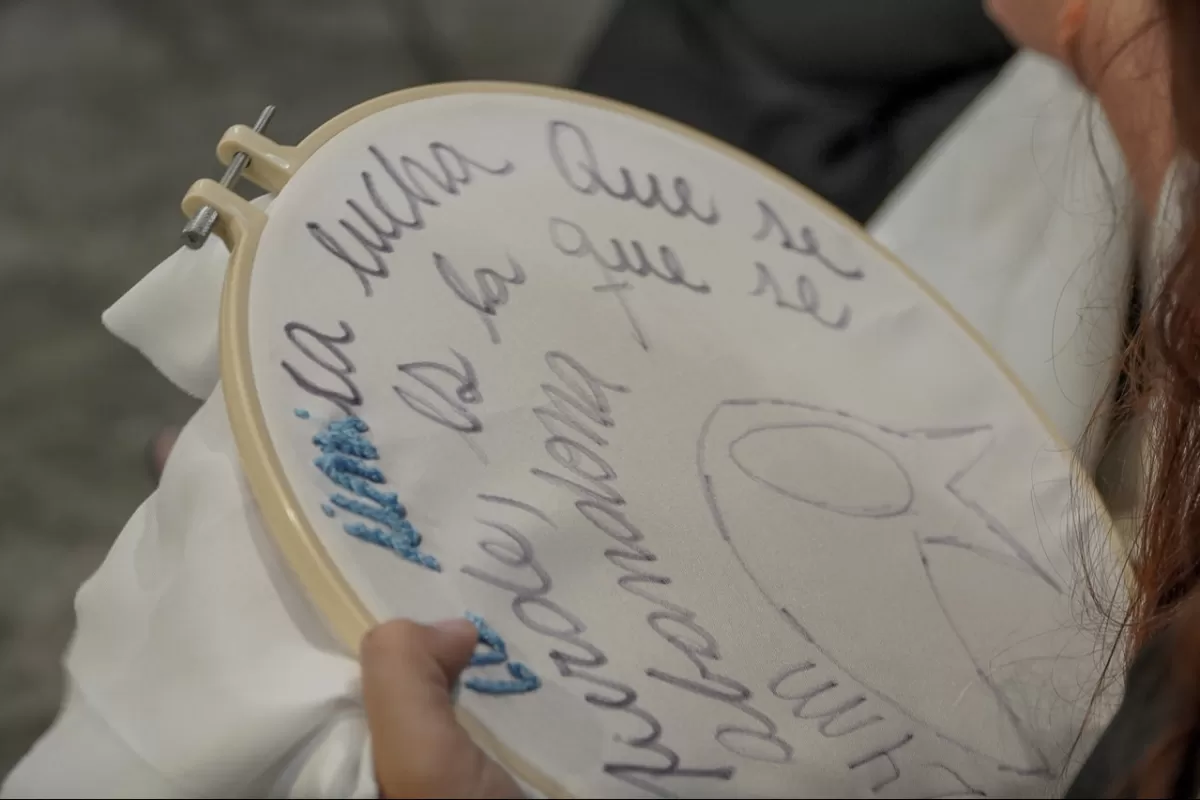 La única lucha Que se
pierde es la que se
abandona